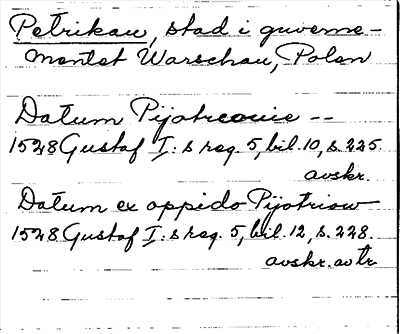 Petrikau, stad i guverne-
mentet Warschau, Polen
Datum Pijotrcouie --
1528 Gustaf I:s reg. 5, bil. 10, s. 225.
avskr.
Datum ex oppido Pijotriow
1528 Gustaf I:s reg. 5, bil. 12, s. 228.
avskr. avtr.